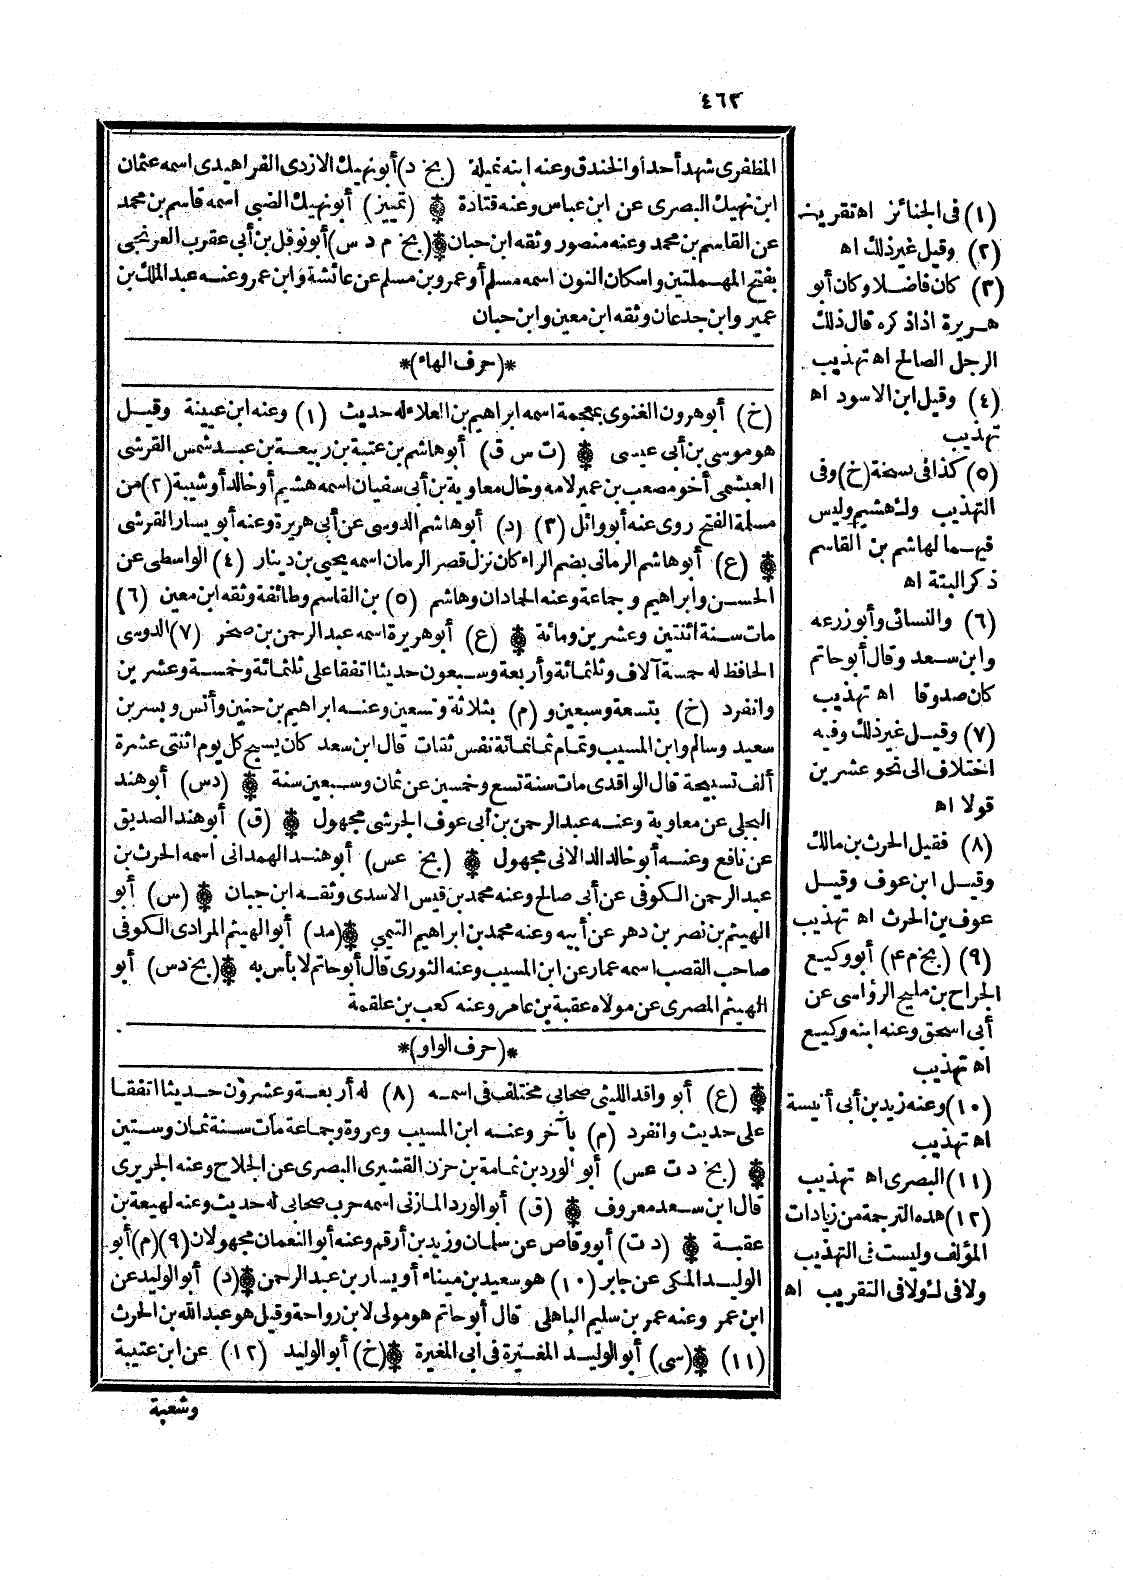 ٤٦٣
المظفرى شهد أحدا والخندق وعنه ابنه نميلة (بخ د) أبو نهيك الازدى الفراهيدى اسمه عثمان
ابن نهيك البصرى عن ابن عباس وعنه قتادة (تمييز) أبو نهيك الضبى اسمه قاسم بن محمد
عن القاسم بن محمد وعنه منصور وثقه ابن حبان (بخ م د س) أبو نوفل بن أبى عقرب العرنجى
بفتح المهملتين واسكان النون اسمه مسلم أو عمرو بن مسلم عن عائشة وابن عمر وعنه عبد الملك بن
عمير وابن جدعان وثقه ابن معين وابن حبان
*(حرف الهاء)*
(خ) أبو هرون الغنوى بمعجمة اسمه ابراهيم بن العلاء له حديث (١) وعنه ابن عيينة وقيل
هو موسى بن أبى عيسى (ت س ق) أبو هاشم بن عتبة بن ربيعة بن عبد شمس القرشى
العبشمى أخو مصعب بن عمير لامه وخال معاوية بن أبى سفيان اسمه هشيم أو خالد أو شيبة (٢) من
مسلمة الفتح روى عنه أبو وائل (٣) (د) أبو هاشم الدوسى عن أبى هريرة وعنه أبو يسار القرشى
(ع) أبو هاشم الرمانى بضم الراء كان نزل قصر الرمان اسمه يحيى بن دينار (٤) الواسطى عن
الحسن وابراهيم وجماعة وعنه الحمادان وهاشم (٥) بن القاسم وطائفة وثقه ابن معين (٦)
مات سنة اثنتين وعشرين ومائة (ع) أبو هريرة اسمه عبد الرحمن بن صخر (٧) الدوسى
الحافظ له خمسة آلاف وثلثمائة وأربعة وسبعون حديثا اتفقا على ثلثمائة وخمسة وعشرين
وانفرد (خ) بتسعة وسبعين و (م) بثلاثة وتسعين وعنه ابراهيم بن حنين وأنس وبسر بن
سعيد وسالم وابن المسيب وتمام ثمانمائة نفس ثقات قال ابن سعد كان يسبح كل يوم اثنتى عشرة
ألف تسبيحة قال الواقدى مات سنة تسع وخمسين عن ثمان وسبعين سنة (د س) أبو هند
البجلى عن معاوية وعنه عبد الرحمن بن أبى عوف الجرشى مجهول (ق) أبو هند الصديق
عن نافع وعنه أبو خالد الدالانى مجهول (بخ عس) أبو هند الهمدانى اسمه الحرث بن
عبد الرحمن الكوفى عن أبى صالح وعنه محمد بن قيس الاسدى وثقه ابن حبان (س) أبو
الهيثم بن نصر بن دهر عن أبيه وعنه محمد بن ابراهيم التيمى (مد) أبو الهيثم المرادى الكوفى
صاحب القصب اسمه عمار عن ابن المسيب وعنه الثورى قال أبو حاتم لا بأس به (بخ د س) أبو
الهيثم المصرى عن مولاه عقبة بن عامر وعنه كعب بن علقمة
*(حرف الواو)*
(ع) أبو واقد الليثى صحابى مختلف فى اسمه (٨) له أربعة وعشرون حديثا اتفقا
على حديث وانفرد (م) بآخر وعنه ابن المسيب وعروة وجماعة مات سنة ثمان وستين
(بخ د ت عس) أبو الورد بن ثمامة بن حزن القشيرى البصرى عن الجلاح وعنه الجريرى
قال ابن سعد معروف (ق) أبو الورد المازنى اسمه حرب صحابى له حديث وعنه لهيعة بن
عقبة (د ت) أبو وقاص عن سلمان وزيد بن أرقم وعنه أبو النعمان مجهولان (٩) (م) أبو
الوليد المكى عن جابر (١٠) هو سعيد بن ميناء أو يسار بن عبد الرحمن (د) أبو الوليد عن
ابن عمر وعنه عمر بن سليم الباهلى قال أبو حاتم هو مولى لابن رواحة وقيل هو عبد الله بن الحرث
(١١) (سى) أبو الوليد المغيرة فى ابى المغيرة (خ) أبو الوليد (١٢) عن ابن عتيبة
وشعبة
(١) فى الجنائز اه تقريب
(٢) وقيل غير ذلك اه
(٣) كان فاضلا وكان أبو
هريرة اذا ذكره قال ذلك
الرجل الصالح اه تهذيب
(٤) وقيل ابن الاسود اه
تهذيب
(٥) كذا فى نسخة (خ) وفى
التهذيب و لـٔ هشيم وليس
فيهما لهاشم بن القاسم
ذكر البتة اه
(٦) والنسائى وأبو زرعه
وابن سعد وقال أبو حاتم
كان صدوقا اه تهذيب
(٧) وقيل غير ذلك وفيه
اختلاف الى نحو عشرين
قولا اه
(٨) فقيل الحرث بن مالك
وقيل ابن عوف وقيل
عوف بن الحرث اه تهذيب
(٩) (بخ م ٤) أبو وكيع
الجراح بن مليح الرؤاسى عن
أبى اسحق وعنه ابنه وكيع
اه تهذيب
(١٠) وعنه زيد بن أبى أنيسة
اه تهذيب
(١١) البصرى اه تهذيب
(١٢) هذه الترجمة من زيادات
المؤلف وليست فى التهذيب
ولا فى لـٔ ولا فى التقريب اه